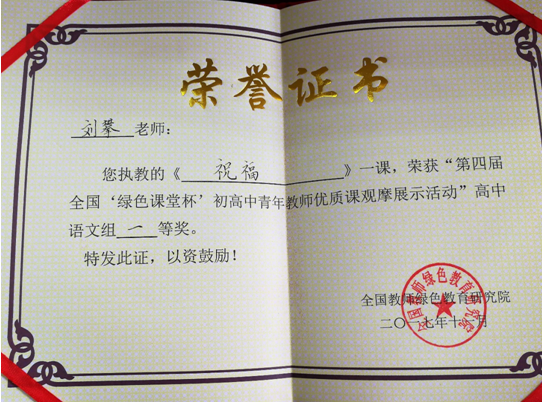 荣誉证书
刘攀老师：
您执教的《祝福》一课，荣获“第四届
全国‘绿色课堂杯’初高中青年教师优质课观摩展示活动”高中
语文组一等奖。
特发此证，以资鼓励！
全国教师绿色教育研究院
二〇一七年十一月
全国教师绿色教育研究院